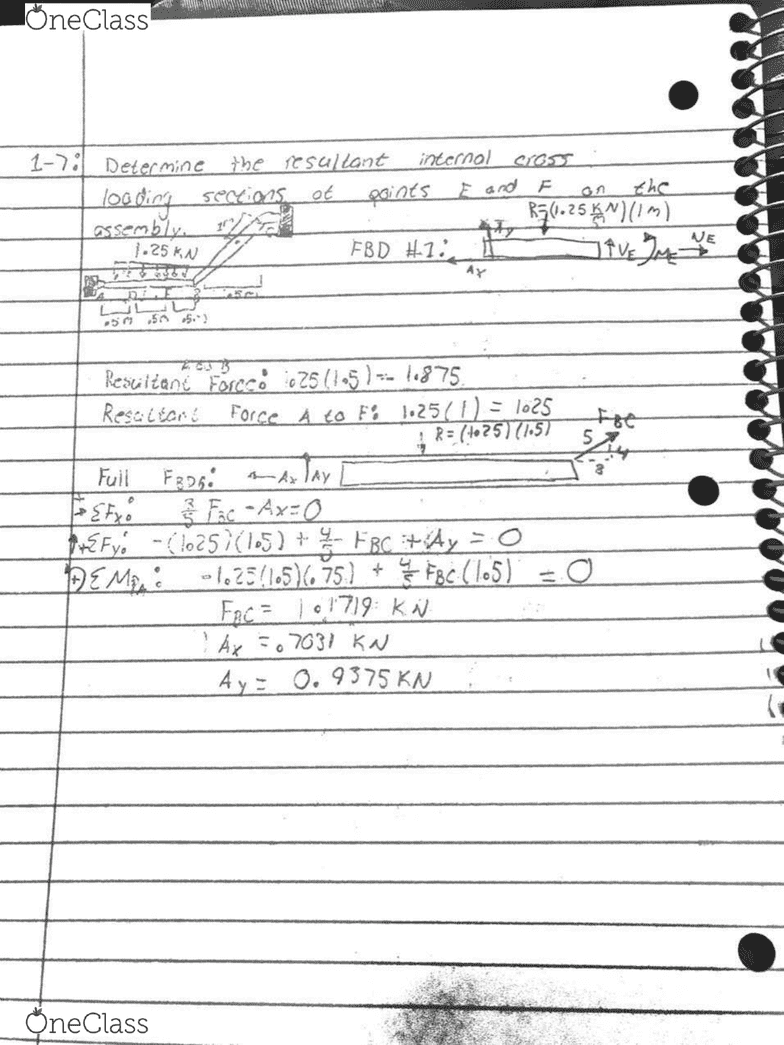 OneClass
1-7: Determine the resultant internal cross
loading sections at points E and F on the
assembly.
R=(1.25 KN/m)(1m)
1.25 KN
FBD #1:
Ay
Ax
VE
ME
NE
.5m
.5m .5m
A to B
Resultant Force: 1.25(1.5) = 1.875
Resultant Force A to F: 1.25(1) = 1.25
R=(1.25)(1.5)
FBC
5
4
3
Full FBDs: Ax Ay
+→ ΣFx: 3/5 FBC - Ax = 0
↑+ ΣFy: -(1.25)(1.5) + 4/5 FBC + Ay = 0
+ ΣMA: -1.25(1.5)(.75) + 4/5 FBC (1.5) = 0
FBC = 1.1719 KN
Ax = .7031 KN
Ay = 0.9375 KN
OneClass